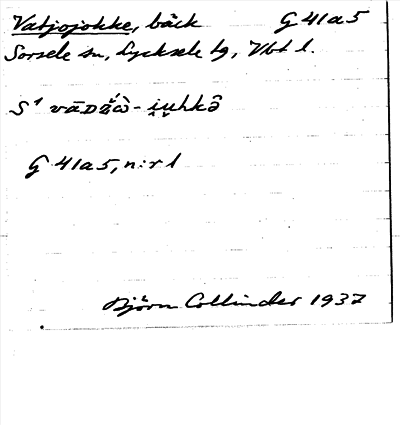 Vatjojokke, bäck G 41a5
Sorsele sn, Lycksele lg, Vbt l.
S¹
G 41a5, n:r 1
Björn Collinder 1937